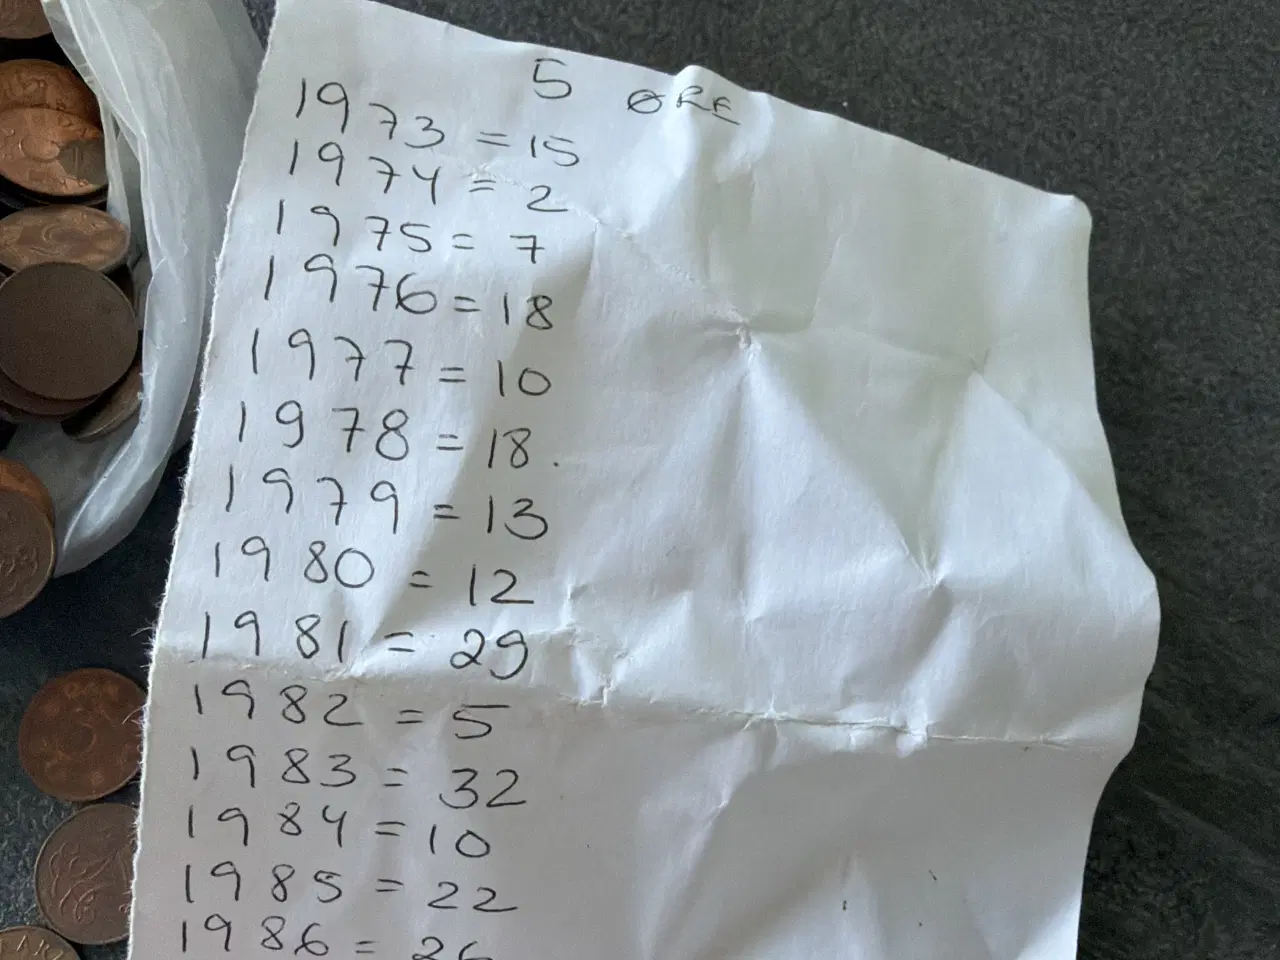 5 ØRE
1973 = 15
1974 = 2
1975 = 7
1976 = 18
1977 = 10
1978 = 18.
1979 = 13
1980 = 12
1981 = 29
1982 = 5
1983 = 32
1984 = 10
1985 = 22
1986 = 26